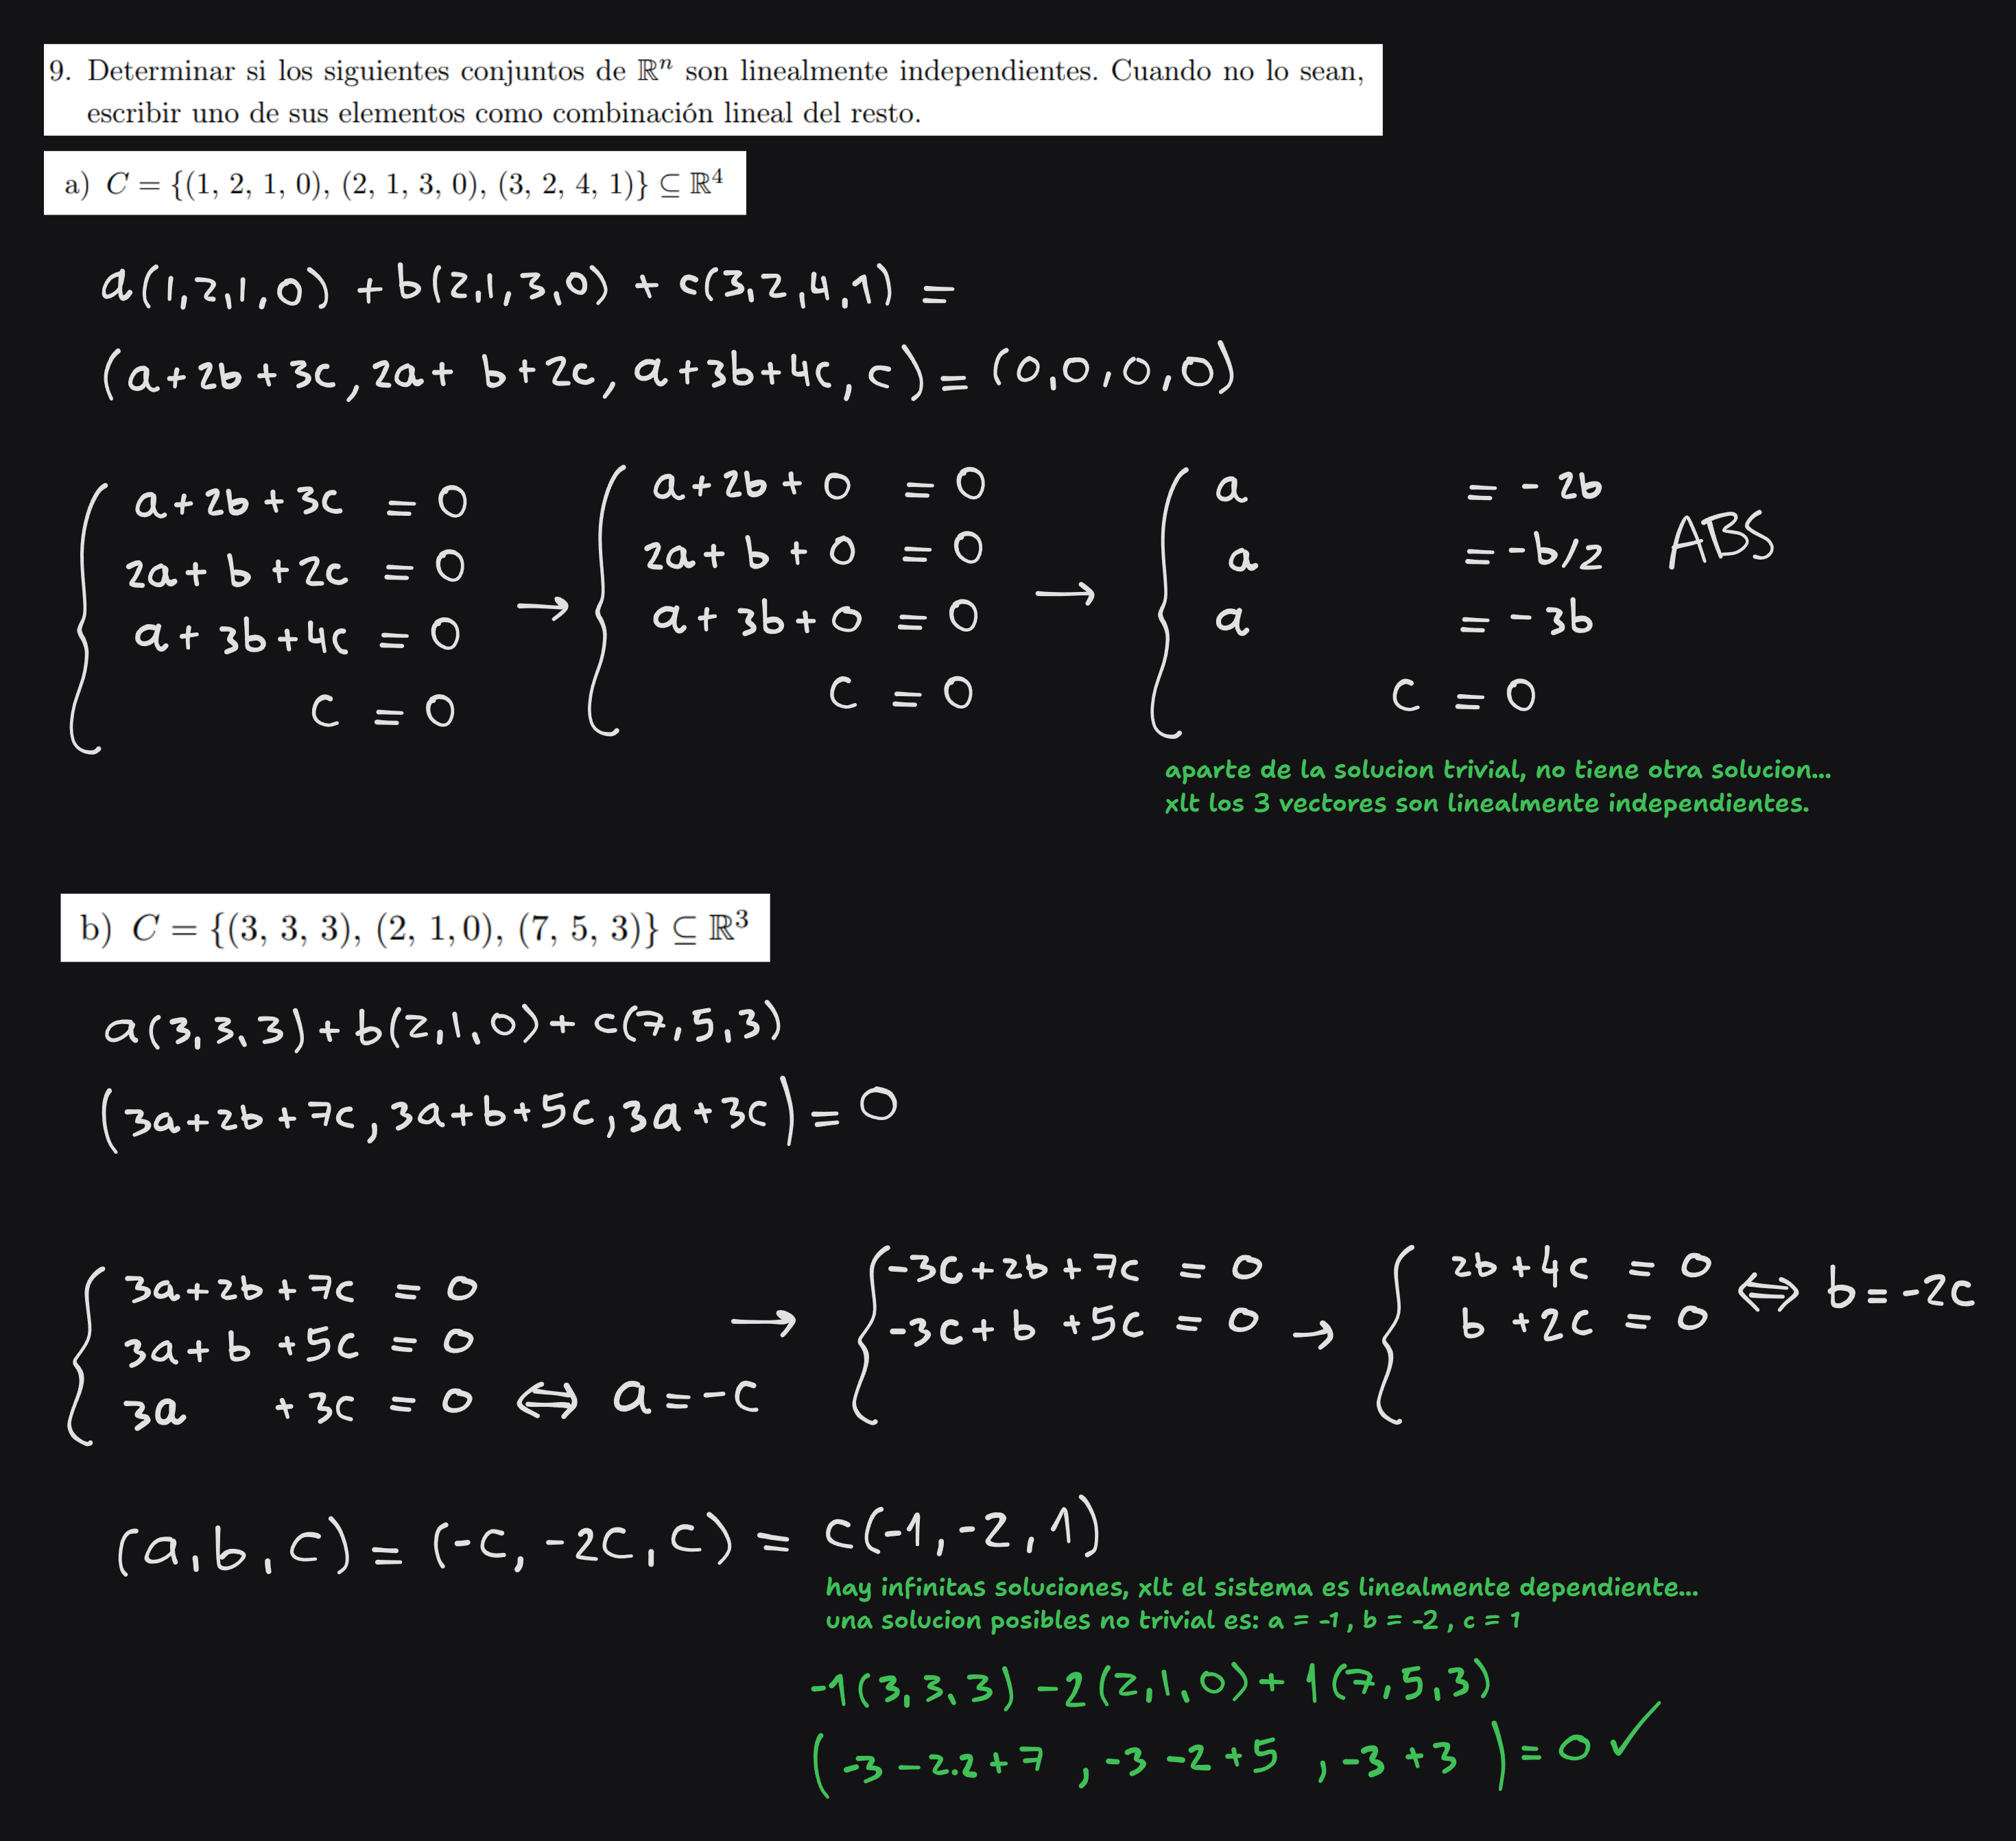 9. Determinar si los siguientes conjuntos de ℝⁿ son linealmente independientes. Cuando no lo sean,
escribir uno de sus elementos como combinación lineal del resto.
a) C = {(1, 2, 1, 0), (2, 1, 3, 0), (3, 2, 4, 1)} ⊆ ℝ⁴
a(1,2,1,0) + b(2,1,3,0) + c(3,2,4,1) =
(a+2b+3c, 2a+b+2c, a+3b+4c, c) = (0,0,0,0)
a+2b+3c = 0
2a+b+2c = 0
a+3b+4c = 0
c = 0
→
a+2b+0 = 0
2a+b+0 = 0
a+3b+0 = 0
c = 0
→
a = -2b
a = -b/2
a = -3b
c = 0
ABS
aparte de la solucion trivial, no tiene otra solucion...
xlt los 3 vectores son linealmente independientes.
b) C = {(3, 3, 3), (2, 1, 0), (7, 5, 3)} ⊆ ℝ³
a(3,3,3) + b(2,1,0) + c(7,5,3)
(3a+2b+7c, 3a+b+5c, 3a+3c) = 0
3a+2b+7c = 0
3a+b+5c = 0
3a +3c = 0 ⟺ a = -c
→
-3c+2b+7c = 0
-3c+b+5c = 0
→
2b+4c = 0
b+2c = 0
⟺ b = -2c
(a,b,c) = (-c, -2c, c) = c(-1,-2,1)
hay infinitas soluciones, xlt el sistema es linealmente dependiente...
una solucion posibles no trivial es: a = -1 , b = -2 , c = 1
-1(3,3,3) -2(2,1,0) + 1(7,5,3)
(-3-2.2+7 , -3-2+5 , -3+3) = 0 ✓